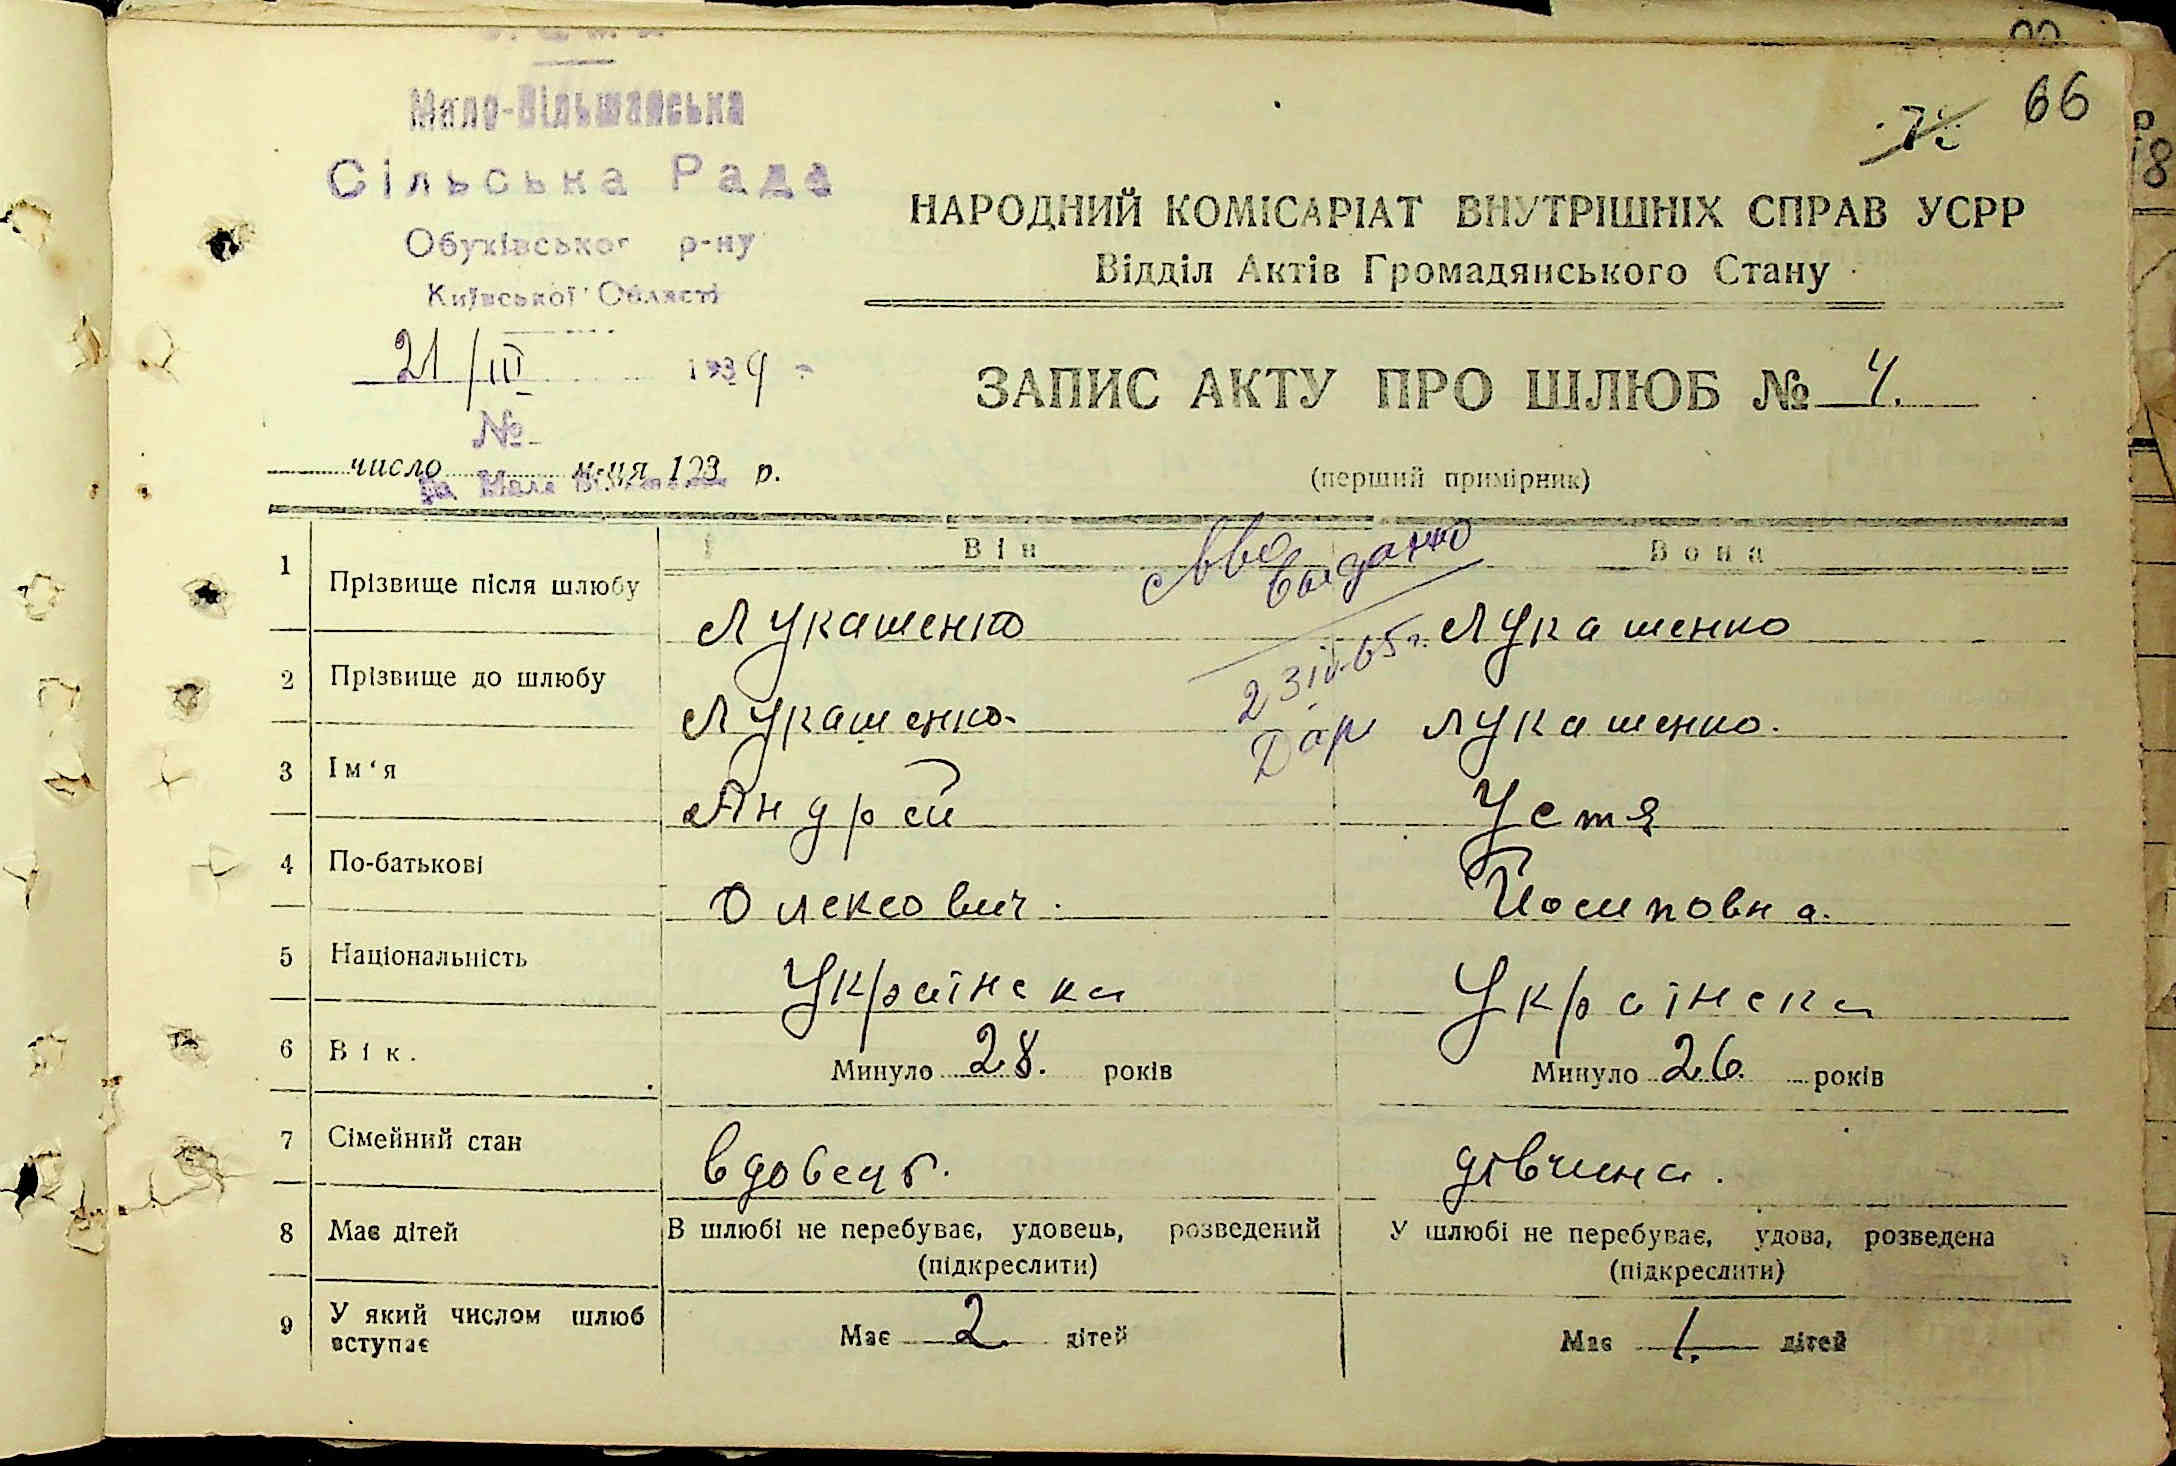 66
Мало-Вільшанська
Сільська Рада
Обухівського р-ну
Київської Області
21/III 1939
№
число м-ця 193 р.
НАРОДНИЙ КОМІСАРІАТ ВНУТРІШНІХ СПРАВ УСРР
Відділ Актів Громадянського Стану
ЗАПИС АКТУ ПРО ШЛЮБ № 4.
(перший примірник)
Він Вона
выдано
23 IV-65 г.
1 Прізвище після шлюбу Лукашенко Лукашенко
2 Прізвище до шлюбу Лукашенко. Лукашенко.
3 Ім'я Андрей Устя
4 По-батькові Олексович. Йосиповна.
5 Національність Українска Українска
6 Вік. Минуло 28. років Минуло 26. років
7 Сімейний стан вдовець. дівчина.
8 Має дітей В шлюбі не перебуває, удовець, розведений У шлюбі не перебуває, удова, розведена
(підкреслити) (підкреслити)
9 У який числом шлюб
вступає Має 2. дітей Має 1. дітей